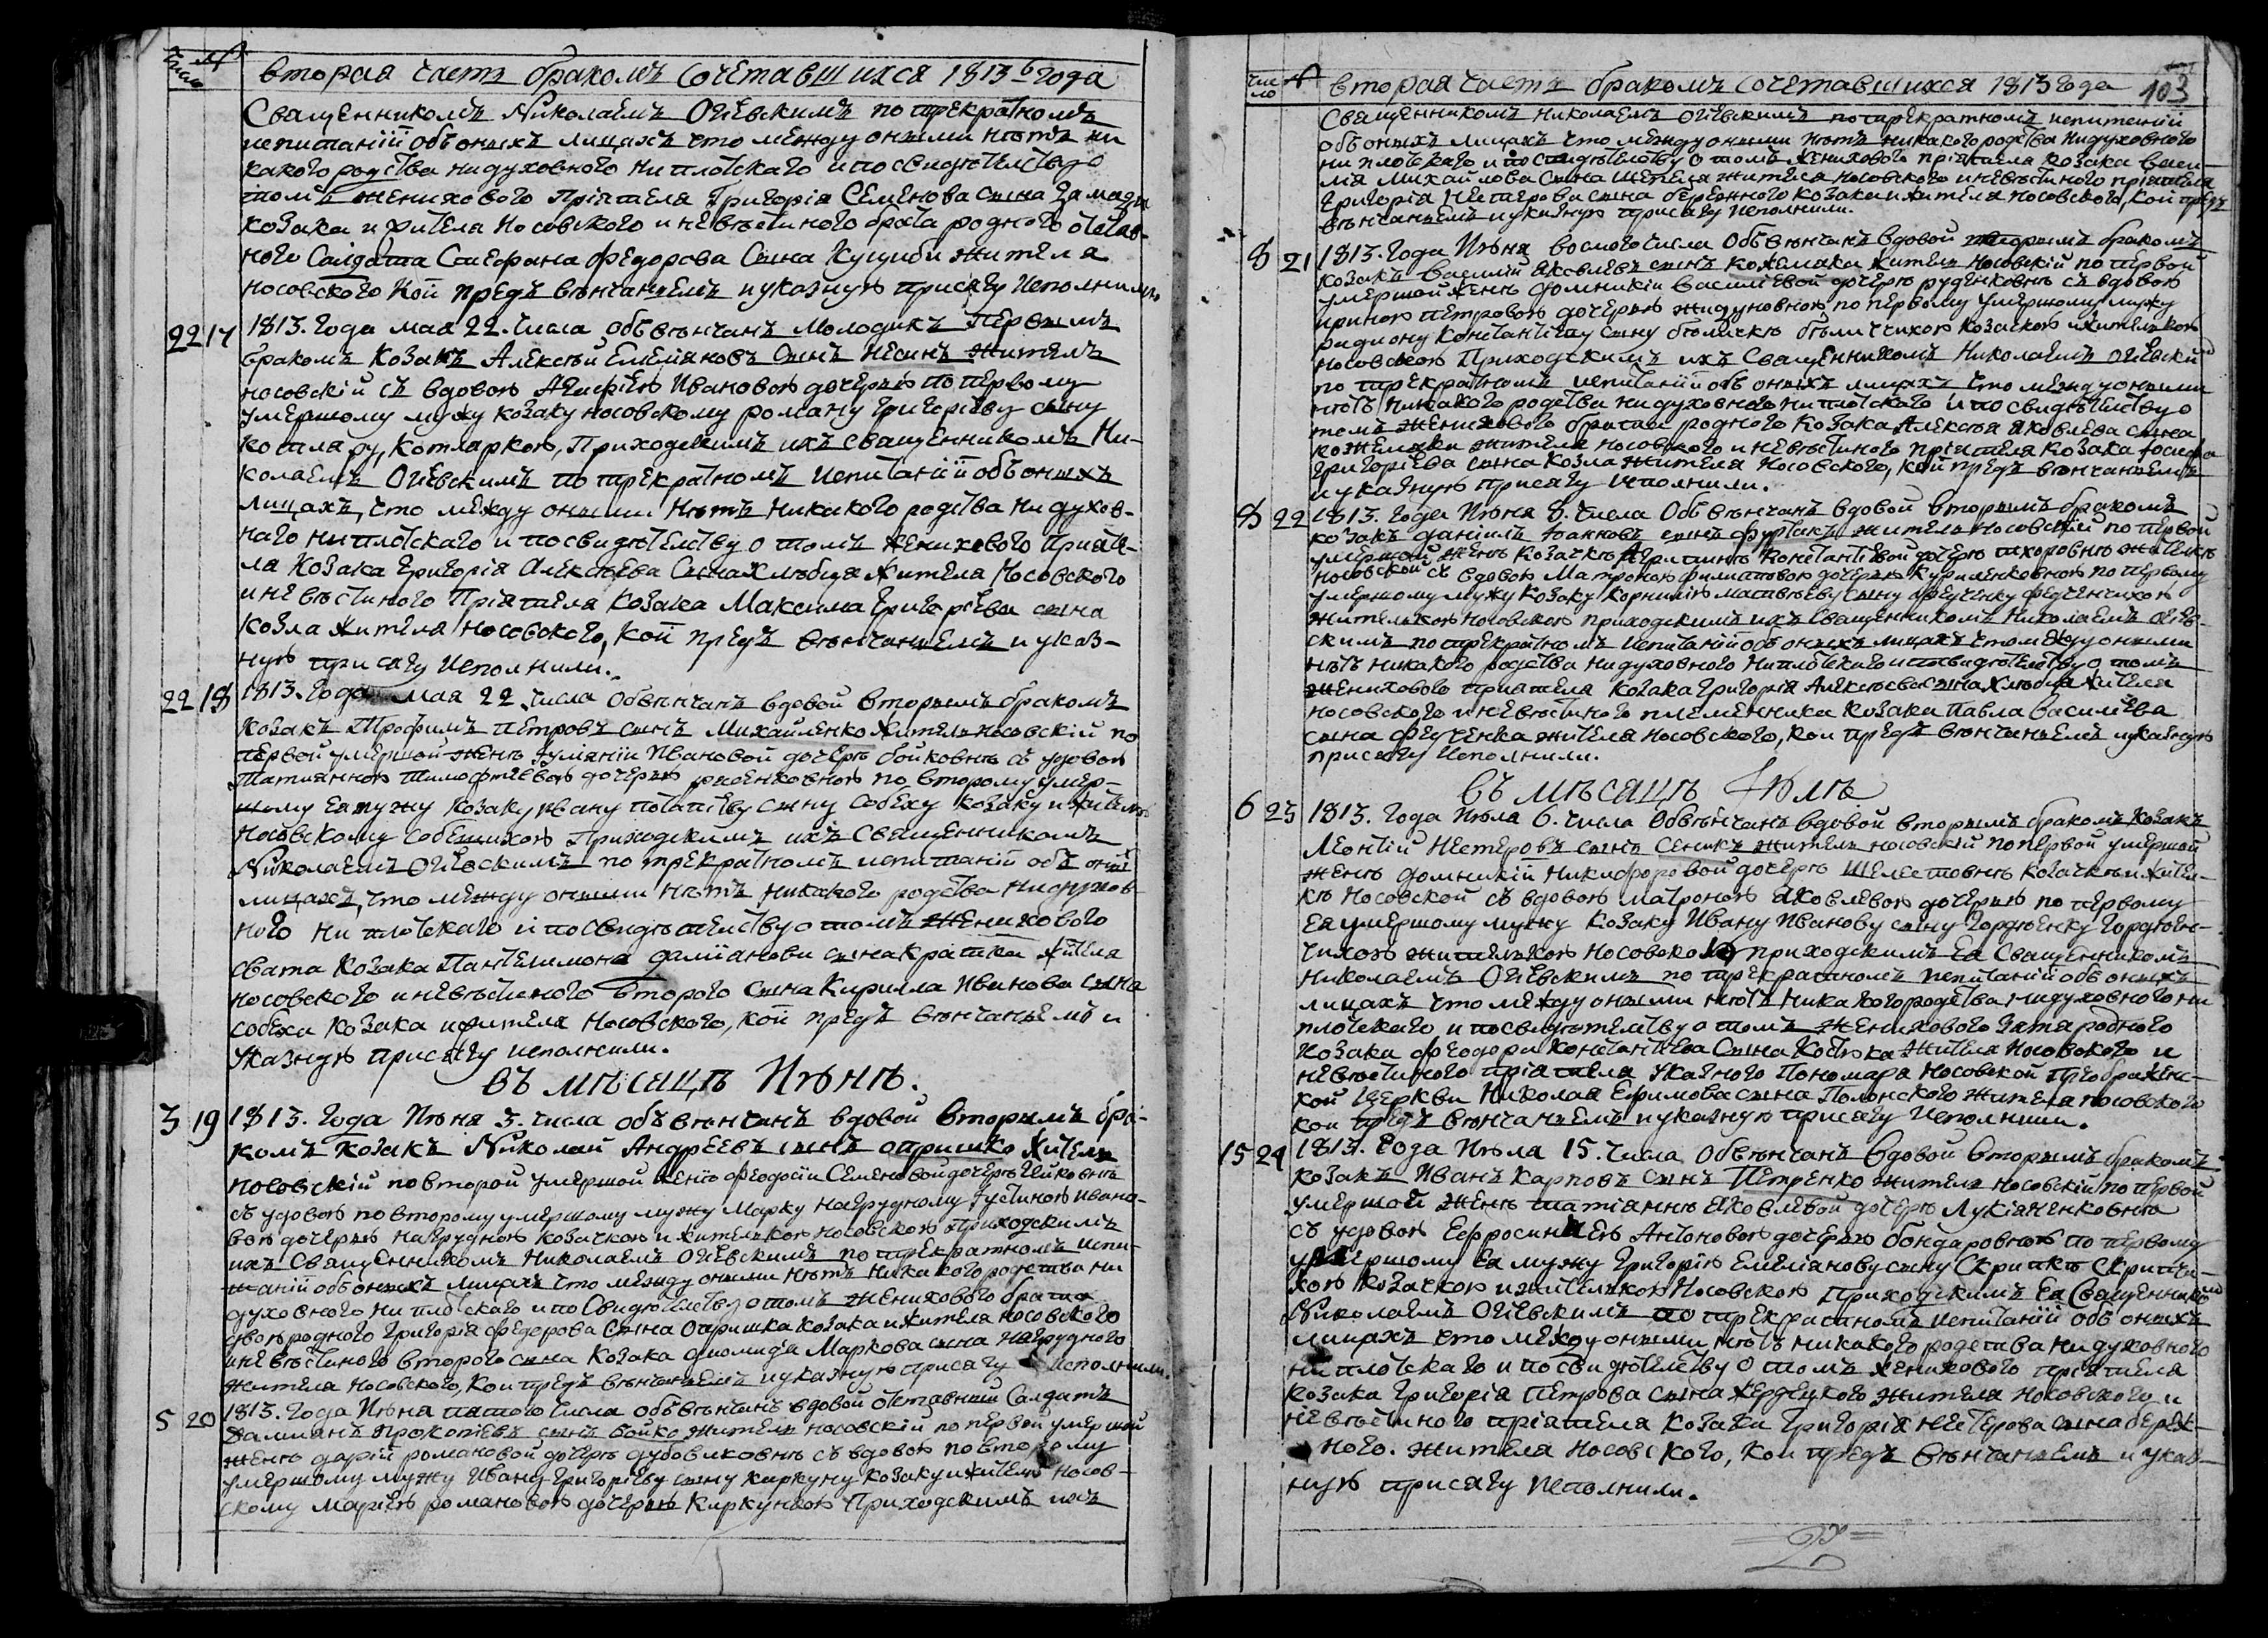 число №
вторая часть бракомъ сочетавшихся 1813 года
Священникомъ Николаемъ Огіевскимъ по трекратномъ
испитаніи объ оныхъ лицахъ что между оными нѣтъ ни
какого родства ни духовного ни плотского и по свидѣтельству о
томъ женихового пріятеля Григорія Семенова сына
козака и жителя Носовского и невѣстиного брата родного отстав-
ного Салдата Стефана Федорова сына жителя
Носовского кои предъ вѣнчаніемъ и указную присягу исполнили
22 17 1813. Года мая 22. числа объвѣнчанъ молодикъ первымъ
бракомъ козакъ Алексѣй Емеліановъ сынъ Несинъ житель
носовскій съ вдовою Агафіею Ивановою дочерью по первому
умершому мужу козаку носовскому роману григоріеву сыну
котляру, Котляркою, Приходскимъ ихъ священникомъ Ни-
колаемъ Огіевскимъ по трекратномъ испитаніи объ оныхъ
лицахъ, что между оными нѣтъ никакого родства ни духов-
ного ни плотского и по свидѣтельству о томъ женихового Пріяте-
ля Козака григорія Алексѣева сына Хлѣбця жителя Носовского
и невѣстиного Пріятеля козака Максима Григоріева сына
Козла жителя носовского, кои предъ вѣнчаніемъ и указ-
ную присягу исполнили.
22 18 1813. Года мая 22 числа объвѣнчанъ вдовой вторымъ бракомъ
козакъ Трофимъ петровъ сынъ Михайленко житель носовскій по
первой умершой женѣ Іуліаніи Ивановой дочерѣ бойковнѣ съ удовою
Татианною Тимофѣевою дочерью по второму умер-
шому ея мужу козаку ивану потапіеву сыну Собеху козаку и жителю
Носовскому собешихою Приходскимъ ихъ Священникомъ
Николаемъ Огіевскимъ по трекратномъ испитаніи объ оныхъ
лицахъ, что между оными нѣтъ никакого родства ни духов-
ного ни плотского и по свидѣтельству о томъ женихового
свата козака Пантелимона даміанова сына жителя
носовского и невѣстиного второго сына Кирилла Иванова сына
собеха козака и жителя Носовского, кои предъ вѣнчаніемъ и
указную присягу исполнили.
въ мѣсяцѣ Июнѣ.
3 19 1813. Года Июня 3. числа объвѣнчанъ вдовой вторымъ бра-
комъ козакъ Николай Андреевъ сынъ опришко житель
носовскій по второй умершой женѣ Феодосіи Семеновой дочерѣ
съ удовою по второму умершому мужу Марку Іустиною Ивано-
вою дочерью козачкою и жителькою носовскою Приходскимъ
ихъ Священникомъ Николаемъ Огіевскимъ по трекратномъ испи-
таніи объ оныхъ лицахъ что между оными нѣтъ никакого родства ни
духовного, ни плотского и по Свидѣтельству о томъ женихового брата
двоюродного Григорія Федорова сына Опришка козака и жителя носовского
и невѣстиного второго сына козака диомида Маркова сына
жителя Носовского, кои предъ вѣнчаніемъ и указную присягу исполнили.
5 20 1813. Года Июня пятого числа объвѣнчанъ вдовой отставный Салдатъ
Даміанъ Прокопіевъ сынъ бойко житель носовскій по первой умершой
женѣ даріи романовой дочерѣ дубовиковнѣ съ вдовою по второму
умершому мужу Ивану Григоріеву сыну киркуну козаку и жителю Носов-
скому Маріею романовою дочерью Киркункою Приходскимъ ихъ

число №
вторая часть бракомъ сочетавшихся 1813 года 103
Священникомъ Николаемъ Огіевскимъ по трекратномъ испитаніи
объ оныхъ лицахъ что между оными нѣтъ никакого родства ни духовного
ни плотского и по свидѣтельству о томъ женихового пріятеля козака васи-
лія Михайлова сына жителя носовского и невѣстиного пріятеля
Григорія Нестерова сына бережного козака и жителя носовского, кои предъ
вѣнчаніемъ и указную присягу исполнили.
8 21 1813. Года Июня восмого числа объвѣнчанъ вдовой вторымъ бракомъ
козакъ василій яковлевъ сынъ кожемяка житель носовскій по первой
умершой женѣ домникіи василіевой дочерѣ руденковнѣ съ вдовою
ириною петровою дочерью жидуновною по первому умершому мужу
родиону константіеву сыну козачкою и жителькою
носовскою Приходскимъ ихъ Священникомъ Николаемъ Огіевскимъ
по трекратномъ испитаніи объ оныхъ лицахъ что между оными
нѣтъ никакого родства ни духовного ни плотского и по свидѣтельству о
томъ женихового брата родного козака Алексѣя яковлева сына
кожемяки жителя носовского и невѣстиного пріятеля козака Іосифа
Григоріева сына козла жителя носовского, кои предъ вѣнчаніемъ
и указную присягу исполнили.
8 22 1813. Года Июня 8. числа Объвѣнчанъ вдовой вторымъ бракомъ
козакъ даніилъ Іоанновъ сынъ житель носовскій по первой
умершой женѣ козачкѣ Агрипинѣ константіевой дочерѣ тихоровнѣ жителькѣ
носовской съ вдовою Матроною филиповою дочерью Куриленковною по первому
умершому мужу козаку корнилію матвѣеву сыну федченку федченчихою
жителькою носовскою приходскимъ ихъ Священникомъ Николаемъ Огіев-
скимъ по трекратномъ испитаніи объ оныхъ лицахъ что между оными
нѣтъ никакого родства ни духовного ни плотского и по свидѣтельству о томъ
женихового приятеля козака Григорія Алексѣева сына Хлѣбця жителя
носовского и невѣстиного племенника козака Павла Василіева
сына федченка жителя носовского, кои предъ вѣнчаніемъ и указную
присягу исполнили.
въ мѣсяцѣ Июлѣ
6 23 1813. Года Июля 6. числа Объвѣнчанъ вдовой вторымъ бракомъ козакъ
Леонтій Нестеровъ сынъ Сеникъ житель носовскій по первой умершой
женѣ домникіи Никифоровой дочерѣ Шелестовнѣ козачкѣ и житель-
кѣ Носовской съ вдовою матроною яковлевою дочерью по первому
ея умершому мужу козаку Ивану Иванову сыну Гордіенку Гордіен-
чихою жителькою носовскою приходскимъ ея Священникомъ
Николаемъ Огіевскимъ по трекратномъ испитаніи объ оныхъ
лицахъ что между оными нѣтъ никакого родства ни духовного ни
плотского и по свидѣтельству о томъ женихового зятя родного
козака феодора константіева сына Костюка жителя носовского и
невѣстиного пріятеля указного Пономаря носовской Преображенс-
кой церкви Николая Ефимова сына Полонского жителя носовского
кои предъ вѣнчаніемъ и указную присягу исполнили.
15 24 1813. Года Июля 15. числа Объвѣнчанъ вдовой вторымъ бракомъ
козакъ Иванъ Карповъ сынъ Петренко житель носовскій по первой
умершой женѣ татіаннѣ яковлевой дочерѣ Лукіаненковнѣ
съ удовою Ефросиніею Антоновою дочерью бондаровною по первому
умершому ея мужу Григорію Емеліанову сыну Скрипкѣ Скрипчи-
хою козачкою и жителькою Носовскою Приходскимъ ея Священникомъ
Николаемъ Огіевскимъ по трекратномъ испитаніи объ оныхъ
лицахъ что между оными нѣтъ никакого родства ни духовного
ни плотского и по свидѣтельству о томъ женихового пріятеля
козака Григорія Петрова сына жителя носовского и
невѣстиного пріятеля козака Григорія Нестерова сына береж-
ного. жителя носовского, кои предъ вѣнчаніемъ и указ-
ную присягу исполнили.